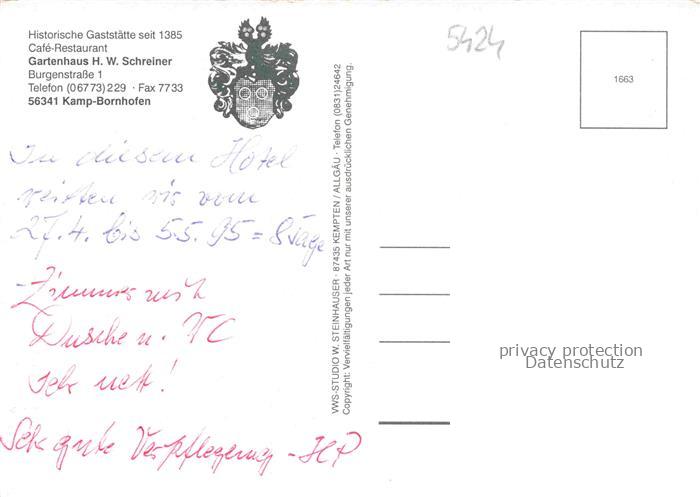 Historische Gaststätte seit 1385
Café-Restaurant
Gartenhaus H. W. Schreiner
Burgenstraße 1
Telefon (06773) 229 · Fax 7733
56341 Kamp-Bornhofen
5424
1663
In diesem Hotel
wir vom
27.4. bis 5.5.95 = 8 Tage
Zimmer mit
Dusche u. WC
sehr nett!
Sehr gute Verpflegung - HP
VWS-STUDIO W. STEINHAUSER · 87435 KEMPTEN / ALLGÄU · Telefon (0831)24642
Copyright: Vervielfältigungen jeder Art nur mit unserer ausdrücklichen Genehmigung.
privacy protection
Datenschutz